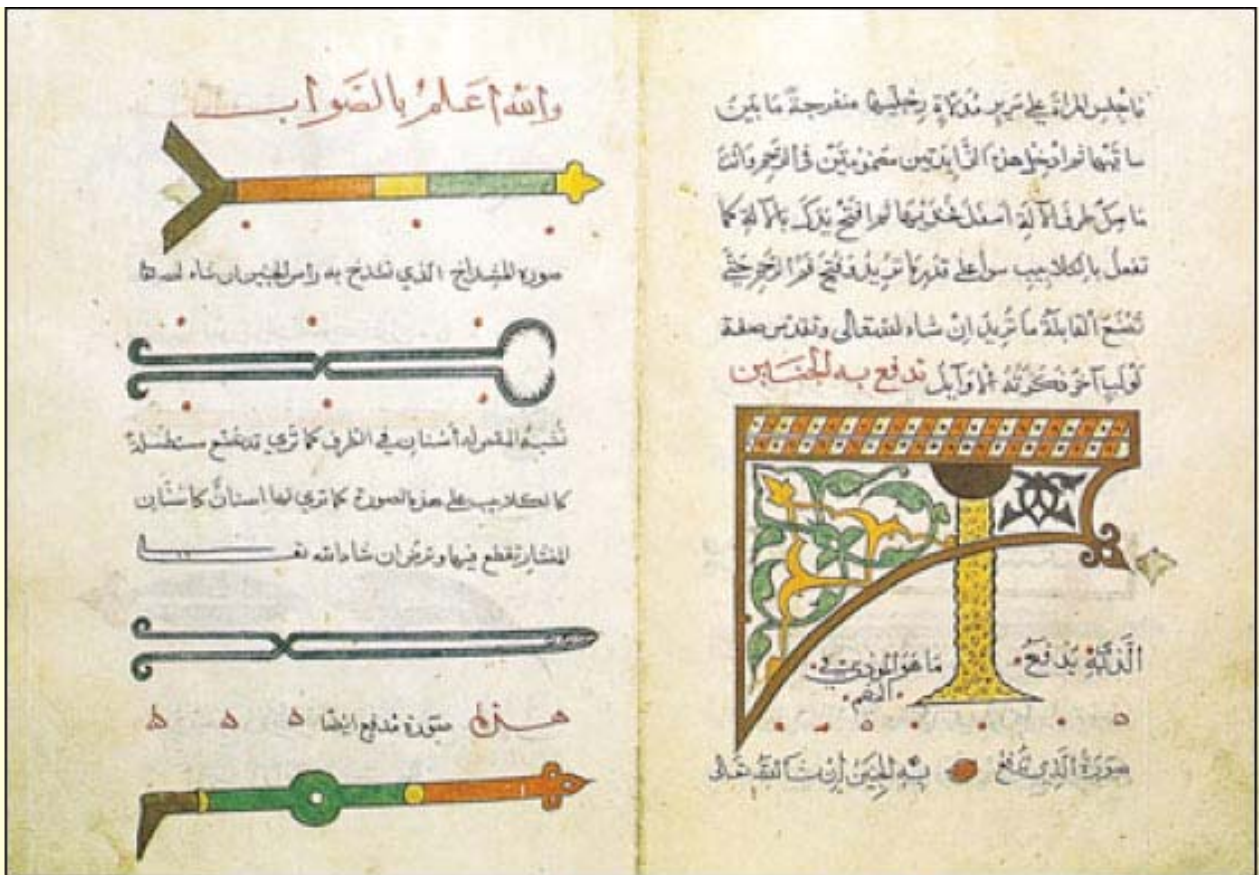 فاجلس المراة على سرير مدلاة رجليها منفرجة ما بين
ساقيها ثم ادخل هذه الزايدتين مضمومتين في الرحم وانت
ماسك طرف الآلة اسفل فخذيها ثم افتح يدك بالآلة كما
تفعل بالكلاليب سوا على قدر ما تريد فتح فم الرحم حتى
تصنع القابلة ما تريد ان شاء الله تعالى وتقدس صفة
لولب آخر ذكرته الاوايل تدفع به الجنين
يدفع ما هو المودي في
الفم
صورة الذي تفتح به الجنين إن شا الله تعالى
والله أعلم بالصواب
صورة المشداخ الذي تشدخ به راس الجنين ان شاء الله تعا
تشبه المقص له أسنان في الطرف كما ترى وقد تصنع مستطيلة
كالكلاليب على هذه الصورة كما ترى لها اسنان كأسنان
المنشار تقطع فيها وترض ان شاء الله تعــا
هذه صورة مدفع ايضا ه ه ه